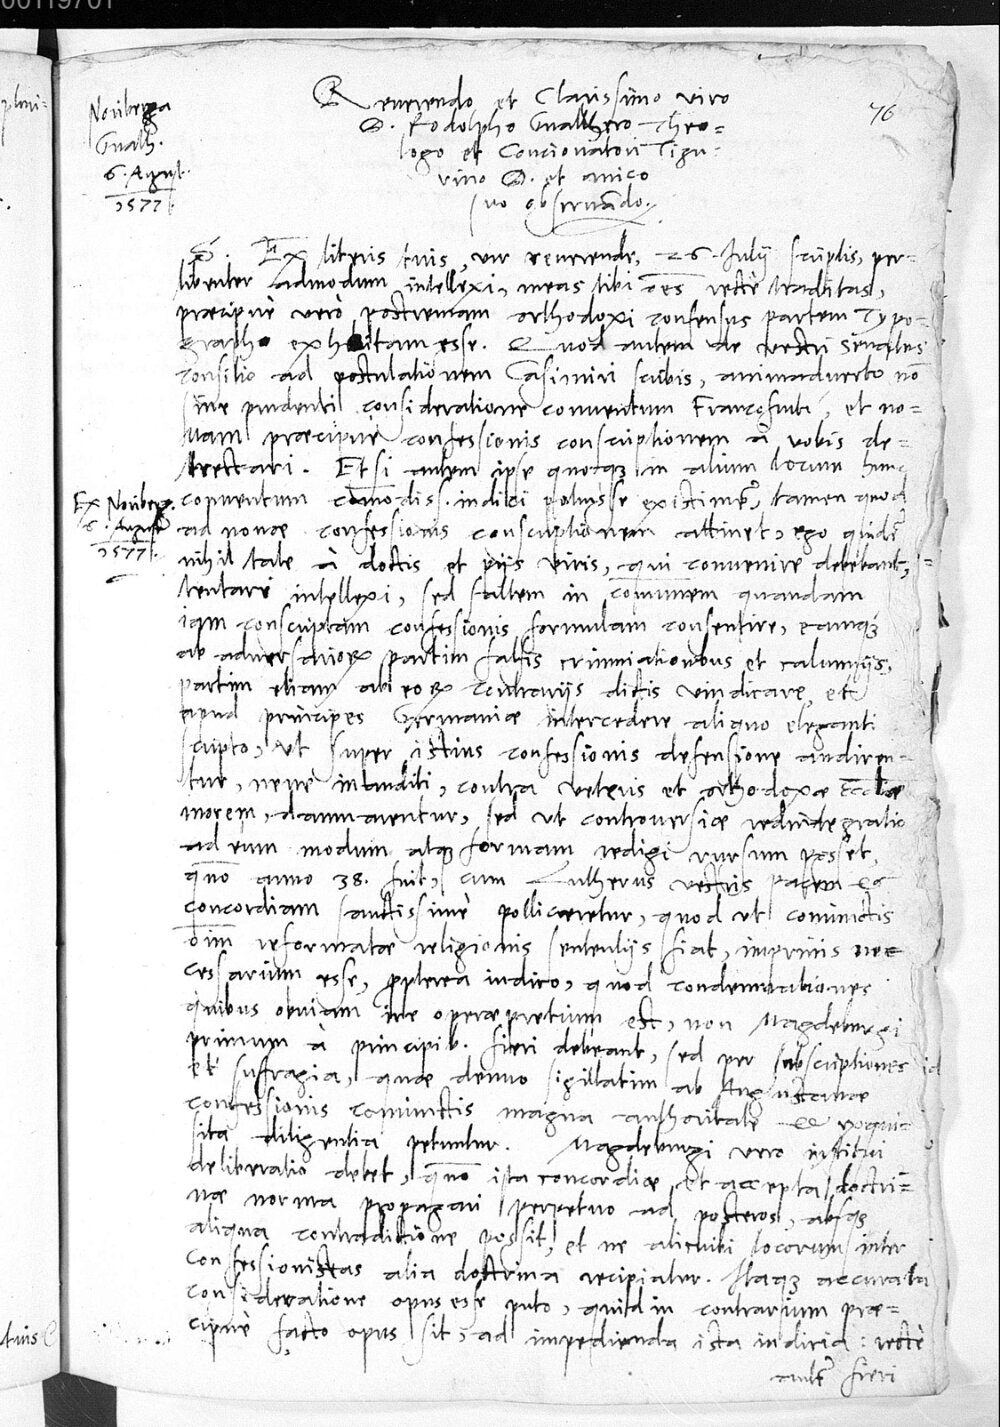 00119701
76
Noriberga
Gualh.
6. August.
1577
Reverendo et Clarissimo viro
D. Rodolpho Gualthero Theo=
logo et Concionatori Tigu=
rino D. et amico
suo observando.
S. Ex literis tuis, vir reverende, 26. Julij scriptis, per=
libenter admodum intellexi, meas tibi oes rectè traditas,
præcipuè verò postremam orthodoxi consensus partem Typo=
grapho exhibitam esse. Quod autem de vestri Senatus
consilio ad postulationem Casimiri scribis, animadverto nō
sine prudenti consideratione conventum Francofurti, et no=
vam præcipuè confessionis conscriptionem à vobis de=
trectari. Etsi autem ipse quoq; in alium locum hunc
Ex Noriberg.
6. August
1577
conventum com̄odiss. indici potuisse existimē, tamen quod
ad novae confessionis conscriptionem attinet, ego quidē
nihil tale à doctis et pijs viris, qui convenire debebant,
tentari intellexi, sed saltem in com̄unem quandam
iam conscriptam confessionis formulam consentire, eamq;
ab adversarior partim falsis criminationibus et calumnijs,
partim etiam ab eor contrarijs dictis vindicare, et
apud principes Germaniæ intercedere aliquo eleganti
scripto, ut super istius confessionis defensione audiren=
tur, neve inauditi, contra veteris et orthodoxæ Eccliæ
morem, damnarentur, sed ut controversiæ redintegratio
ad eum modum atq; formam redigi rursum posset,
quō anno 38. fuit, cum Lutherus vestris pacem et
concordiam sanctissimè polliceretur, quod ut coniunctis
oīm reformatæ religionis sententijs fiat, imprimis nec
cessarium esse, ppterea iudico, quod condemnationes
quibus obviam ire operæpretium est, non Magdeburgi
primum à principib. fieri debeant, sed per subscriptiones id
et suffragia, quæ denuo sigillatim ab Augustanæ
confessionis coniunctis magna authoritate et exqui=
sita diligentia petuntur. Magdeburgi vero institui
deliberatio debet, quō ista concordiæ et accepta doctri=
næ norma propagari perpetuo ad posteros, absq;
aliqua contradictione possit, et ne alicubi locorum inter
Confessionistas alia doctrina recipiatur. Itaq; accurata
consideratione opus esse puto, quid in contrarium præ=
cipuè facto opus sit, ad impedienda ista indicia: rectè
autē fieri